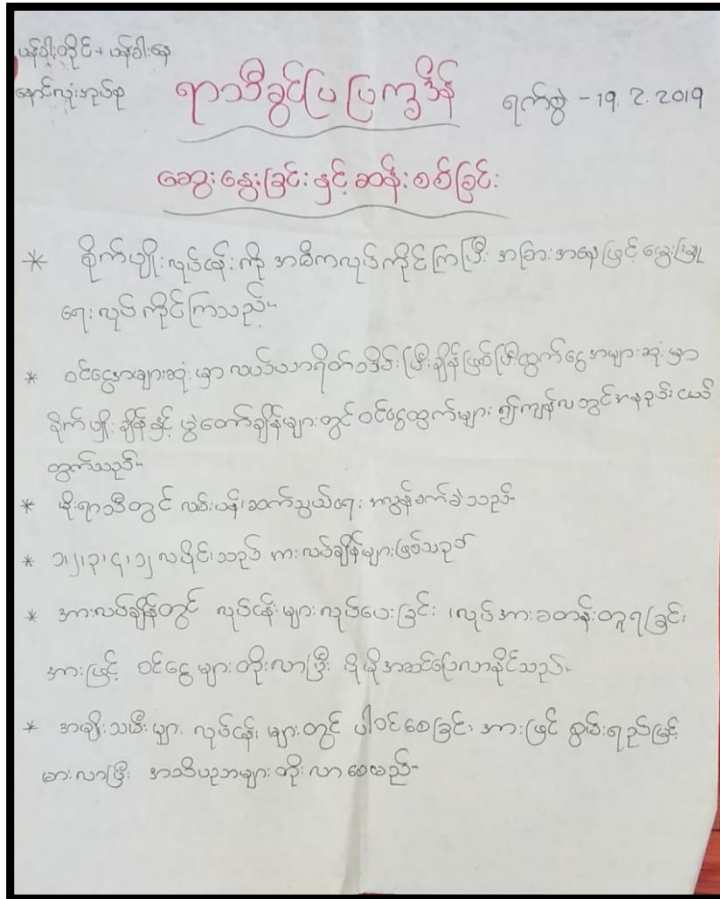 ပန်ခါးတိုင် + ပန်ခါးနေ
နောင်လုံးအုပ်စု
ရာသီခွင်ပြ ပြက္ခဒိန်
ရက်စွဲ - 19. 2. 2019
ဆွေးနွေးခြင်း နှင့် ဆန်းစစ်ခြင်း
* စိုက်ပျိုးလုပ်ငန်းကို အဓိကလုပ်ကိုင်ကြပြီး အခြားအနေဖြင့် မွေးမြူ
ရေး လုပ်ကိုင်ကြသည်။
* ဝင်ငွေအများဆုံးမှာ လယ်ယာရိတ်သိမ်းပြီးချိန်ဖြစ်ပြီးထွက်ငွေအများဆုံးမှာ
စိုက်ပျိုးချိန်နှင့် ပွဲတော်ချိန်များတွင် ဝင်ငွေထွက်များ၍ကျန်လတွင်အနည်းငယ်
ထွက်သည်။
* မိုးရာသီတွင် လမ်းပန်းဆက်သွယ်ရေး အလွန်ခက်ခဲသည်။
* ၁၊၂၊၃၊၄၊၁၂ လပိုင်းသည် အားလပ်ချိန်များဖြစ်သည်။
* အားလပ်ချိန်တွင် လုပ်ငန်းများလုပ်ပေးခြင်း ၊လုပ်အားခတန်းတူရခြင်း
အားဖြင့် ဝင်ငွေများတိုးလာပြီး ပိုမိုအဆင်ပြေလာနိုင်သည်။
* အမျိုးသမီးများ လုပ်ငန်းများတွင် ပါဝင်စေခြင်းအားဖြင့် စွမ်းရည်မြင့်
မားလာပြီး အသိပညာများတိုးလာစေမည်။